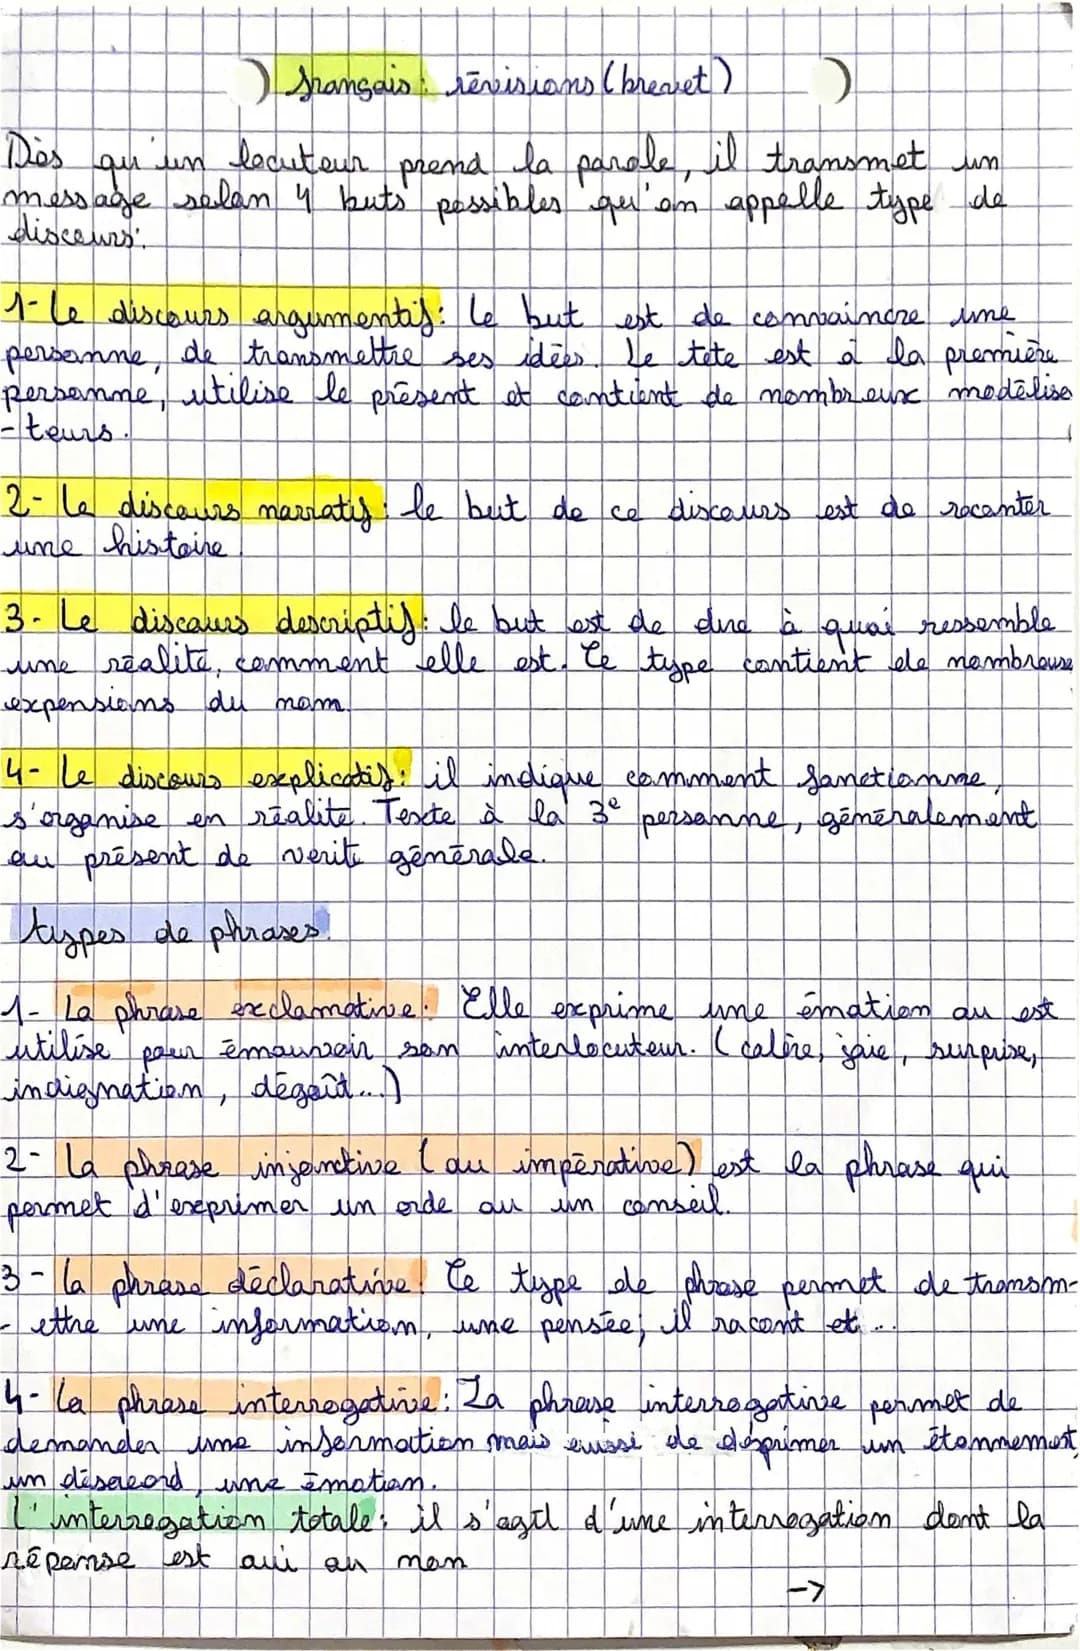 français : révisions (brevet)
Dès qu'un locuteur prend la parole, il transmet un
message selon 4 buts possibles qu'on appelle type de
discours:
1- Le discours argumentif: le but est de convaincre une
personne, de transmettre ses idées. Le tete est à la première
personne, utilise le présent et contient de nombreux modélisa
-teurs.
2- Le discours narratif: le but de ce discours est de raconter
une histoire.
3- Le discours descriptif: le but est de dire à quoi ressemble
une réalité, comment elle est. Ce type contient de nombreuse
expensions du nom.
4- Le discours explicatif: il indique comment fonctionne,
s'organise en réalité. Texte à la 3e personne, généralement
au présent de verité générale.
types de phrases.
1- La phrase exclamative: Elle exprime une émotion ou est
utilise pour émouvoir son interlocuteur. (colère, joie, surprise,
indignation, dégoût...)
2- La phrase injonctive (ou impérative) est la phrase qui
permet d'exprimer un orde ou un conseil.
3- la phrase déclarative: Ce type de phrase permet de transm-
-ettre une information, une pensée; il racont et...
4- La phrase interrogative: La phrase interrogative permet de
demander une information mais aussi de exprimer un étonnement,
un désacord, une émotion.
L'interrogation totale: il s'agit d'une interrogation dont la
réponse est oui ou non
->